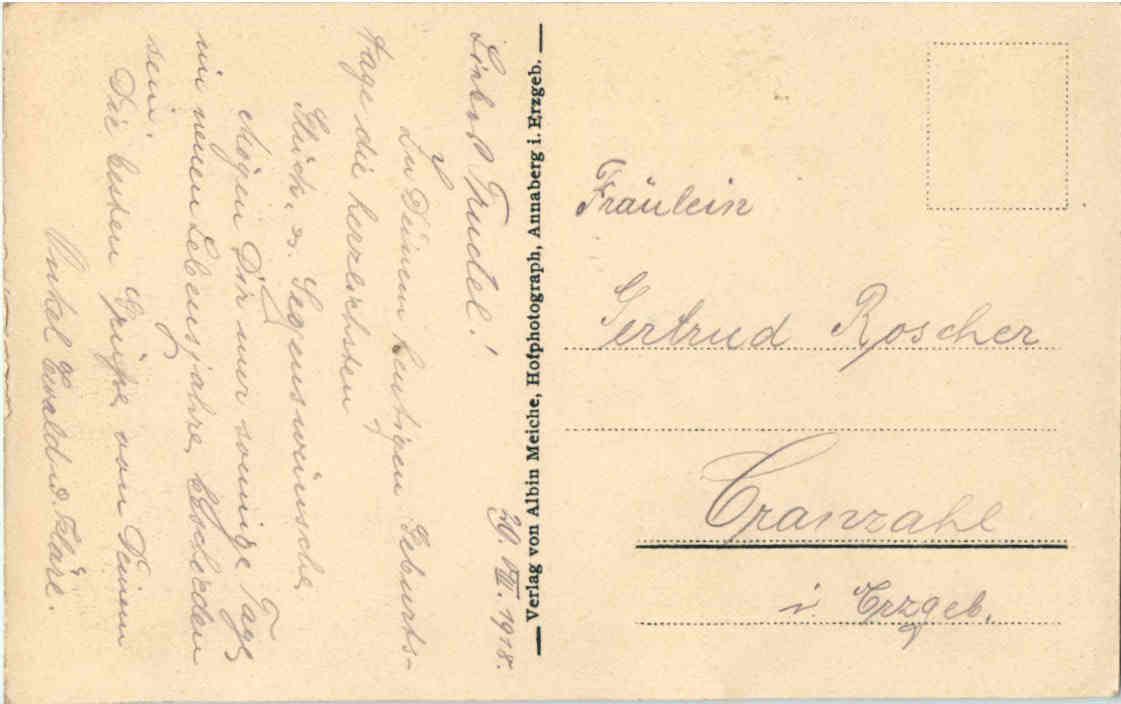 20. VIII. 1918.
Liebes Trudel!
Zu Deinem heutigen Geburts-
tage die herzlichsten
Glück- u. Segenswünsche.
Mögen Dir nur sonnige Tage
im neuen Lebensjahre beschieden
sein.
Die besten Grüße von Deinem
Onkel Ewald u. Kläre.
Verlag von Albin Meiche, Hofphotograph, Annaberg i. Erzgeb.
Fräulein
Gertrud Roscher
Cranzahl
i. Erzgeb.